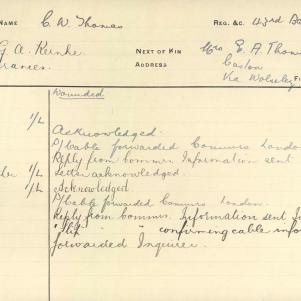 NAME C. W. Thomas REG. &C. 43rd Ba
G. A. Reinke
Frances.
NEXT OF KIN Mrs E. A. Thom
ADDRESS Caston
Via Wolseley
Wounded
1/L Acknowledged.
cable forwarded Commrs London
Reply from Commrs. Information sent
1/L Letter acknowledged.
1/L Acknowledged
cable forwarded Commrs London.
Reply from Commrs. Information sent
" " confirming cable info
forwarded Inquirer.